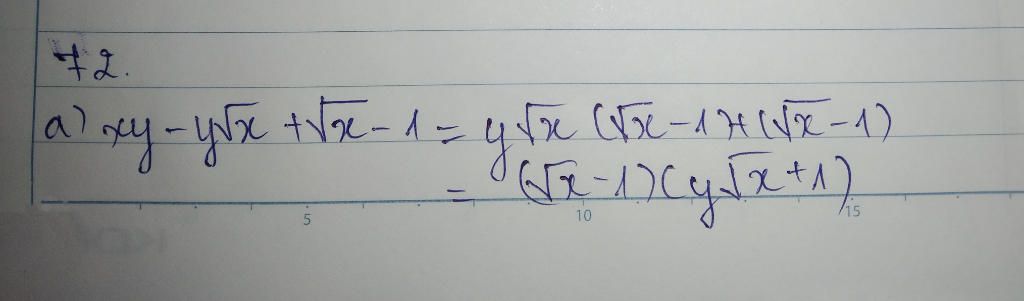 72.
a) xy - y√x + √x - 1 = y√x (√x - 1) + (√x - 1)
= (√x - 1)(y√x + 1)
5 10 15